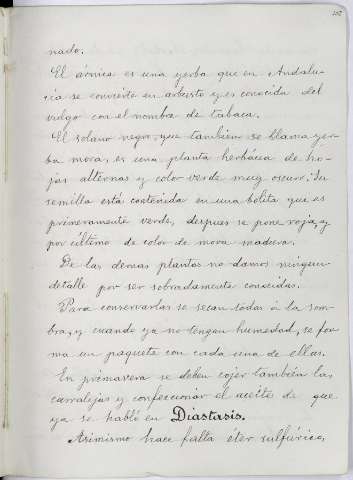 nado.
El árnica es una yerba que en Andalu-
cia se convierte en arbusto y es conocida del
vulgo con el nombre de tabaca.
El solano negro, que tambien se llama yer-
ba mora, es una planta herbácea de ho-
jas alternas y color verde muy oscuro. Su
semilla está contenida en una bolita que es
primeramente verde, despues se pone roja, y
por último de color de mora madura.
De las demas plantas no damos ningun
detalle por ser sobradamente conocidas.
Para conservarlas se secan todas á la som-
bra, y cuando ya no tengan humedad, se for
ma un paquete con cada una de ellas.
En primavera se deben cojer tambien las
carralejas y confeccionar el aceite de que
ya se habló en Diastasis.
Asimismo hace falta éter sulfúrico,